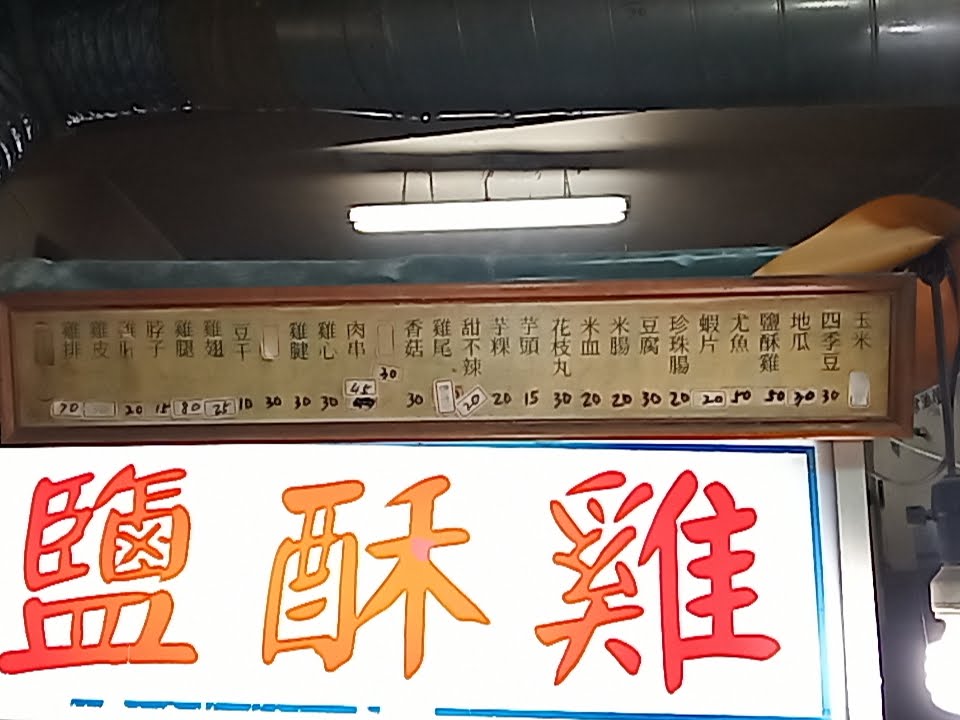 玉米
四季豆 30
地瓜 30
鹽酥雞 50
尤魚 50
蝦片 20
珍珠腸 20
豆腐 30
米腸 20
米血 20
花枝丸 30
芋頭 15
芋粿 20
甜不辣 20
雞尾
香菇 30
30
肉串 45
雞心 30
雞腱 30
30
豆干 10
雞翅
雞腿 80
脖子 15
20
雞皮
雞排 70
鹽酥雞